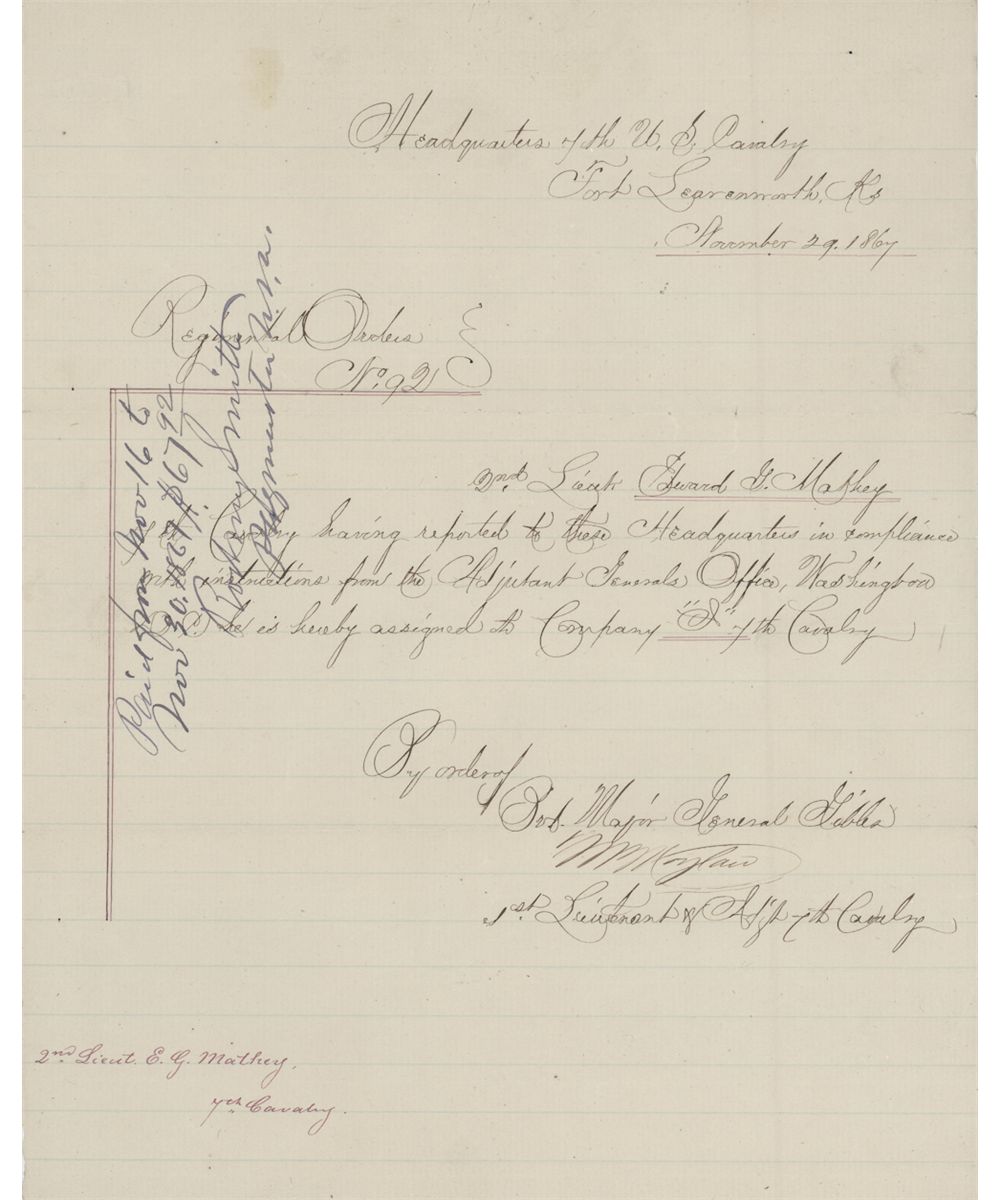 Headquarters 7th U. S. Cavalry
Fort Leavenworth, Ks
November 29. 1867
Regimental Orders
No. 92
2nd Lieut Edward G. Mathey
7th Cavalry having reported to these Headquarters in compliance
with instructions from the Adjutant Generals Office, Washington
D.C. he is hereby assigned to Company "I" 7th Cavalry
By order of
Bvt. Major General Gibbs
1st Lieutenant & Adjt 7th Cavalry
Paid from Nov 16 to
Nov 30. 1867. $67 92
Rodney Smith
Paymaster U.S.A.
2nd Lieut. E. G. Mathey.
7th Cavalry.